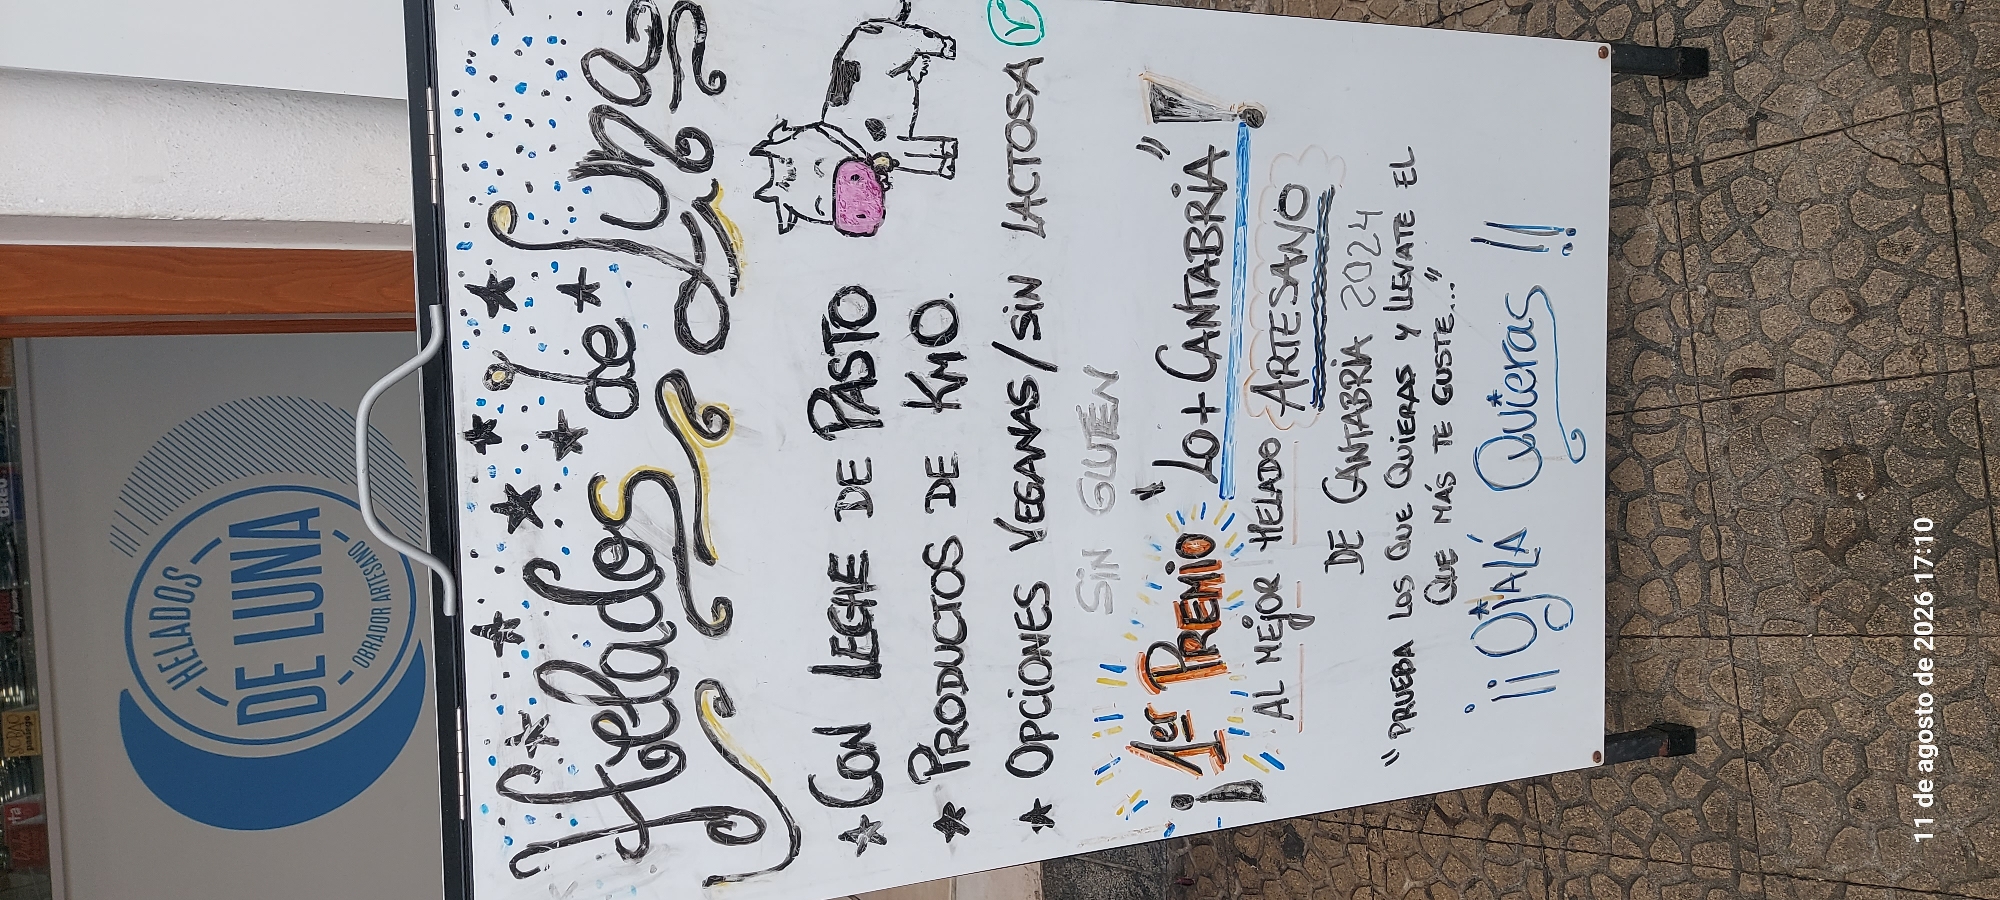 HELADOS
DE LUNA
OBRADOR ARTESANO
Helados de Luna
★ CON LECHE DE PASTO
★ PRODUCTOS DE KM0.
★ OPCIONES VEGANAS/SIN LACTOSA
SIN GLUTEN
¡1er PREMIO "LO+ CANTABRIA"!
AL MEJOR HELADO ARTESANO
DE CANTABRIA 2024
"PRUEBA LOS QUE QUIERAS Y LLEVATE EL
QUE MÁS TE GUSTE..."
¡¡ OJALÁ Quieras !!
11 de agosto de 2026 17:10